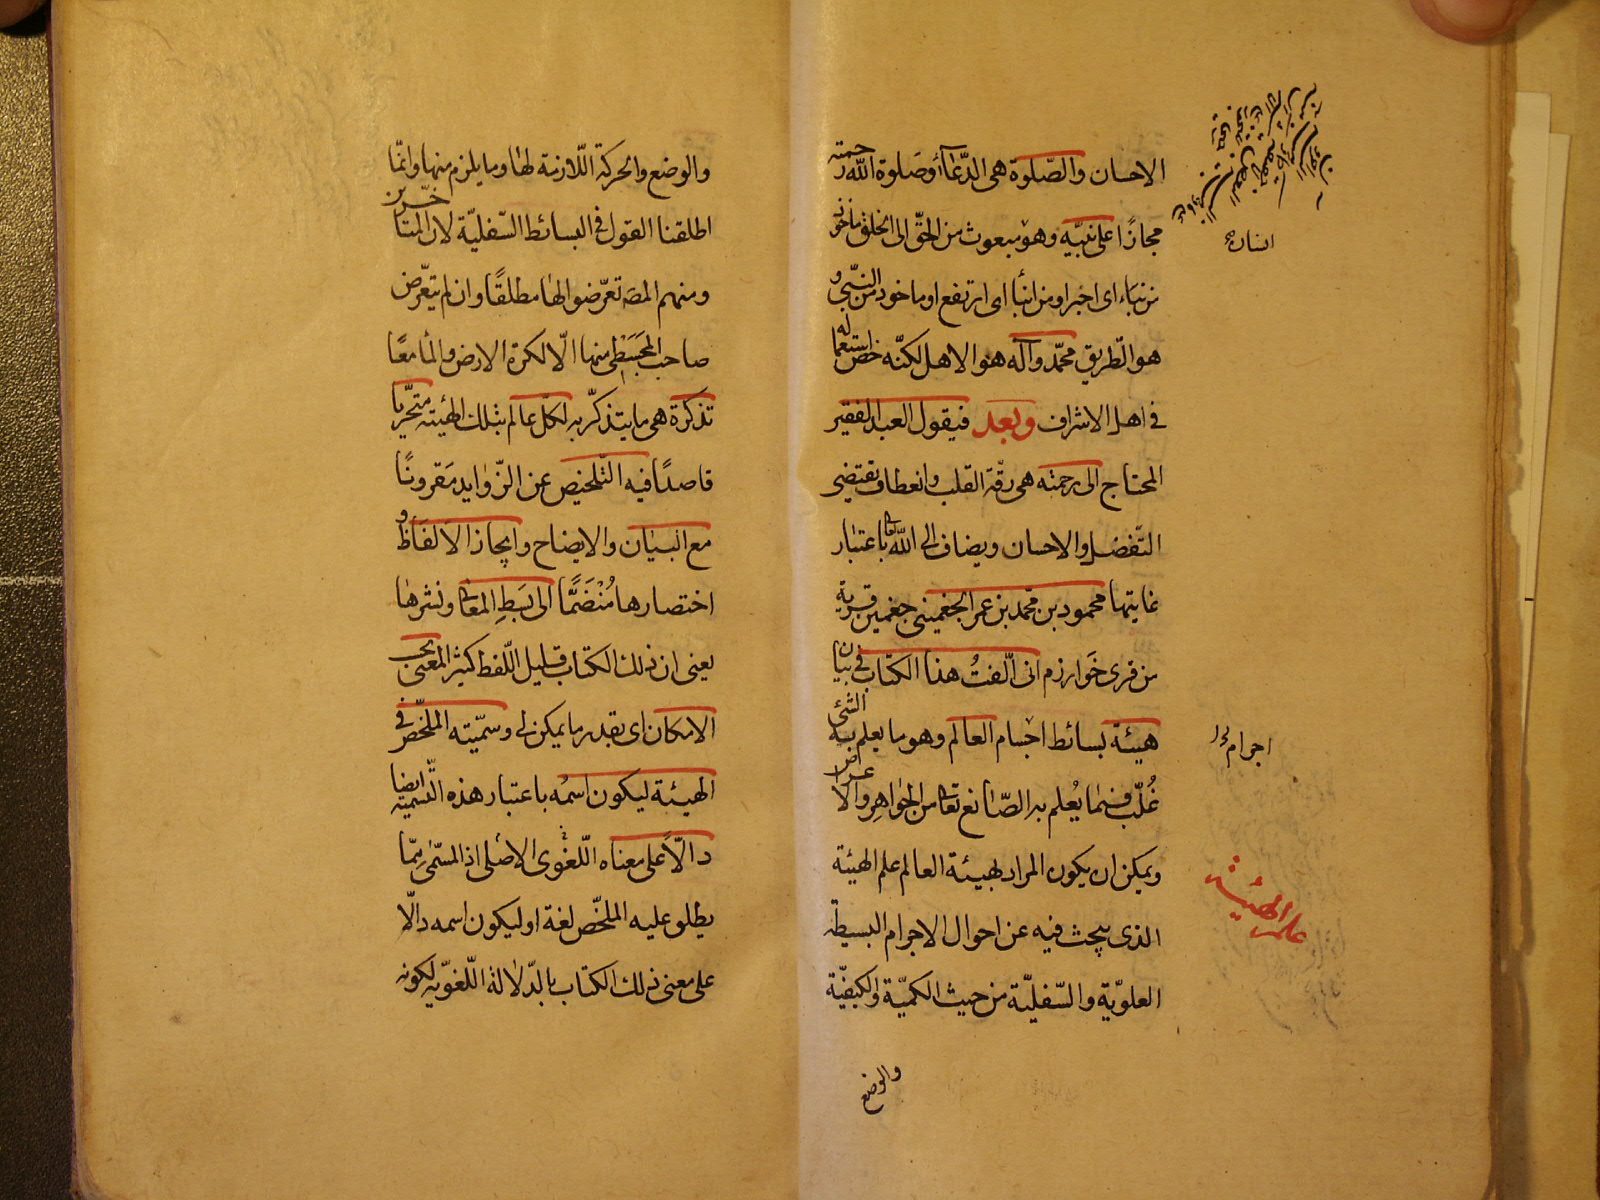 الاحسان والصّلوة هى الدّعآء أو صَلوة الله رحمته
مجازًا على نبيّه وهو مبعوث من الحقّ الى الخلق مأخوذ
من نباء اى اخبر او من انبأ اى ارتفع او ماخوذ من النّبىّ و
هو الطّريق محمّد وآله هو الاهل لكنّه خصّ استعماله
فى اهل الاشراف وبعد فيقول العبد الفقير
المحتاج الى رحمته هى رقّة القلب وانعطاف يقتضى
التّفضل والاحسان ويضاف الى الله تعا باعتبار
غايتها محمود بن محمّد بن عمر الجغمينى جغمين قرية
من قرى خَوارزم انى الّفتُ هذا الكتاب فى بيان
هيئة بسائط اجسام العالم وهو ما يعلم به الشئ
غُلّب فيما يُعلم به الصّانع تعا من الجواهِر والاعراض
ويمكن ان يكون المراد بهيئة العالم علم الهيئة
الذى يبحث فيه عن احوال الاجرام البسيطة
العلويّة والسّفليّة من حيث الكميّة والكيفيّة
والوضع
اجرام
علم الهيئة
والوضع والحركة اللّازمة لها وما يلزم منها وانّما
اطلقنا القول فى البسائط السّفليّة لان المتأخّرين
ومنهم المصَ تعرّضوا لها مطلقًا وان لم يتعرّض
صاحب المجَسَطِى منها الّا لكرة الارض والمآء معًا
تذكرة هى ما يتذكّر به لكلّ عالم بتلك الهيئة متحرّيا
قاصدًا فيه التّلخيص عن الزّوايد مَقرونًا
مع البيَان والايضاح وايجاز الالفاظ و
اختصارها مُنْضَمًّا الى بَسَطِ المعانى ونشرها
يعنى ان ذلك الكتاب قليل اللّفظ كثير المعنى بحسب
الامكان اى بقدر ما يمكن لى وسمّيته الملخّص فى
الهيئة ليكون اسمُه باعتبار هذه التّسمية ايضا
دالّاً على معناه اللّغوى الاصلى اذ المسمّى ممّا
يطلق عليه الملخّص لغة او ليكون اسمه دالّا
على معنى ذلك الكتاب بالدّلالة اللّغويّة لكونه